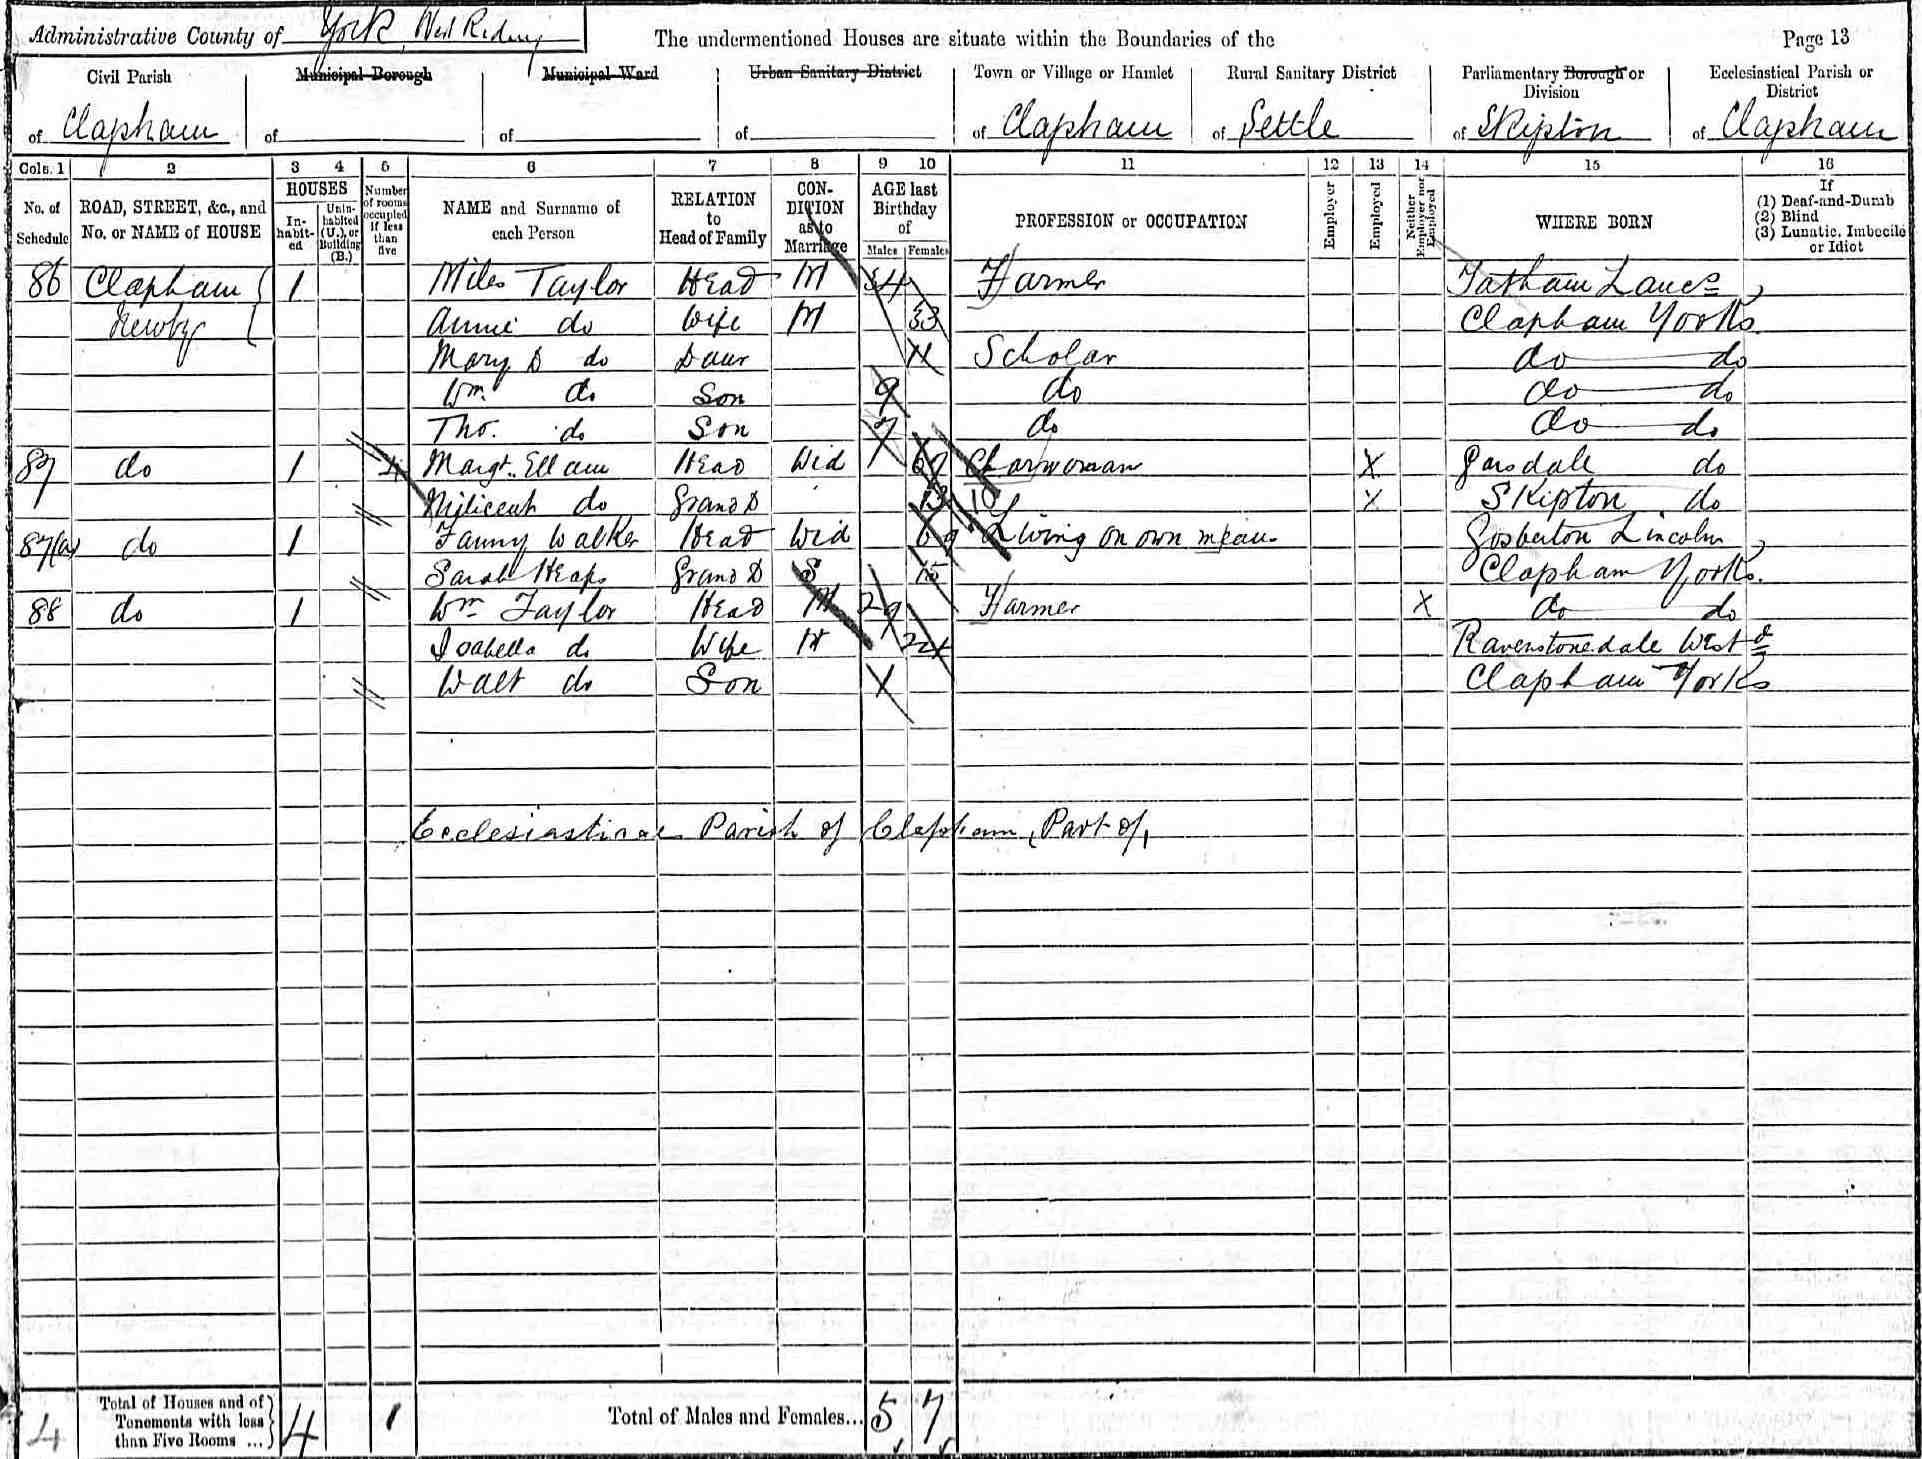 Administrative County of York, West Riding
The undermentioned Houses are situate within the Boundaries of the
Page 13
Civil Parish of Clapham
Municipal Borough of
Municipal Ward of
Urban Sanitary District of
Town or Village or Hamlet of Clapham
Rural Sanitary District of Settle
Parliamentary Borough or Division of Skipton
Ecclesiastical Parish or District of Clapham
Cols. 1 2 3 4 5 6 7 8 9 10 11 12 13 14 15 16
No. of Schedule
ROAD, STREET, &c., and No. or NAME of HOUSE
HOUSES
In-habit-ed
Unin-habited (U.), or Building (B.)
Number of rooms occupied if less than five
NAME and Surname of each Person
RELATION to Head of Family
CON-DITION as to Marriage
AGE last Birthday of
Males Females
PROFESSION or OCCUPATION
Employer
Employed
Neither Employer nor Employed
WHERE BORN
If (1) Deaf-and-Dumb (2) Blind (3) Lunatic, Imbecile or Idiot
86 Clapham 1 Miles Taylor Head M 34 Farmer Tatham Lancs
Newby Annie do Wife M 33 Clapham Yorks.
Mary D do Daur 11 Scholar do do
Wm. do Son 9 do do do
Tho. do Son 7 do do do
87 do 1 4 Margt. Ellam Head Wid 67 Charwoman X Garsdale do
Milicent do Grand D 13 X Skipton do
87(a) do 1 Fanny Walker Head Wid 69 Living on own mean Gosberton Lincoln
Sarah Heaps Grand D S 15 Clapham Yorks.
88 do 1 Wm Taylor Head M 29 Farmer X do do
Isabella do Wife M 24 Ravenstonedale Westd
Walt do Son Clapham Yorks
Ecclesiastical Parish of Clapham, Part of,
4 Total of Houses and of Tenements with less than Five Rooms ... 4 1 Total of Males and Females... 5 7